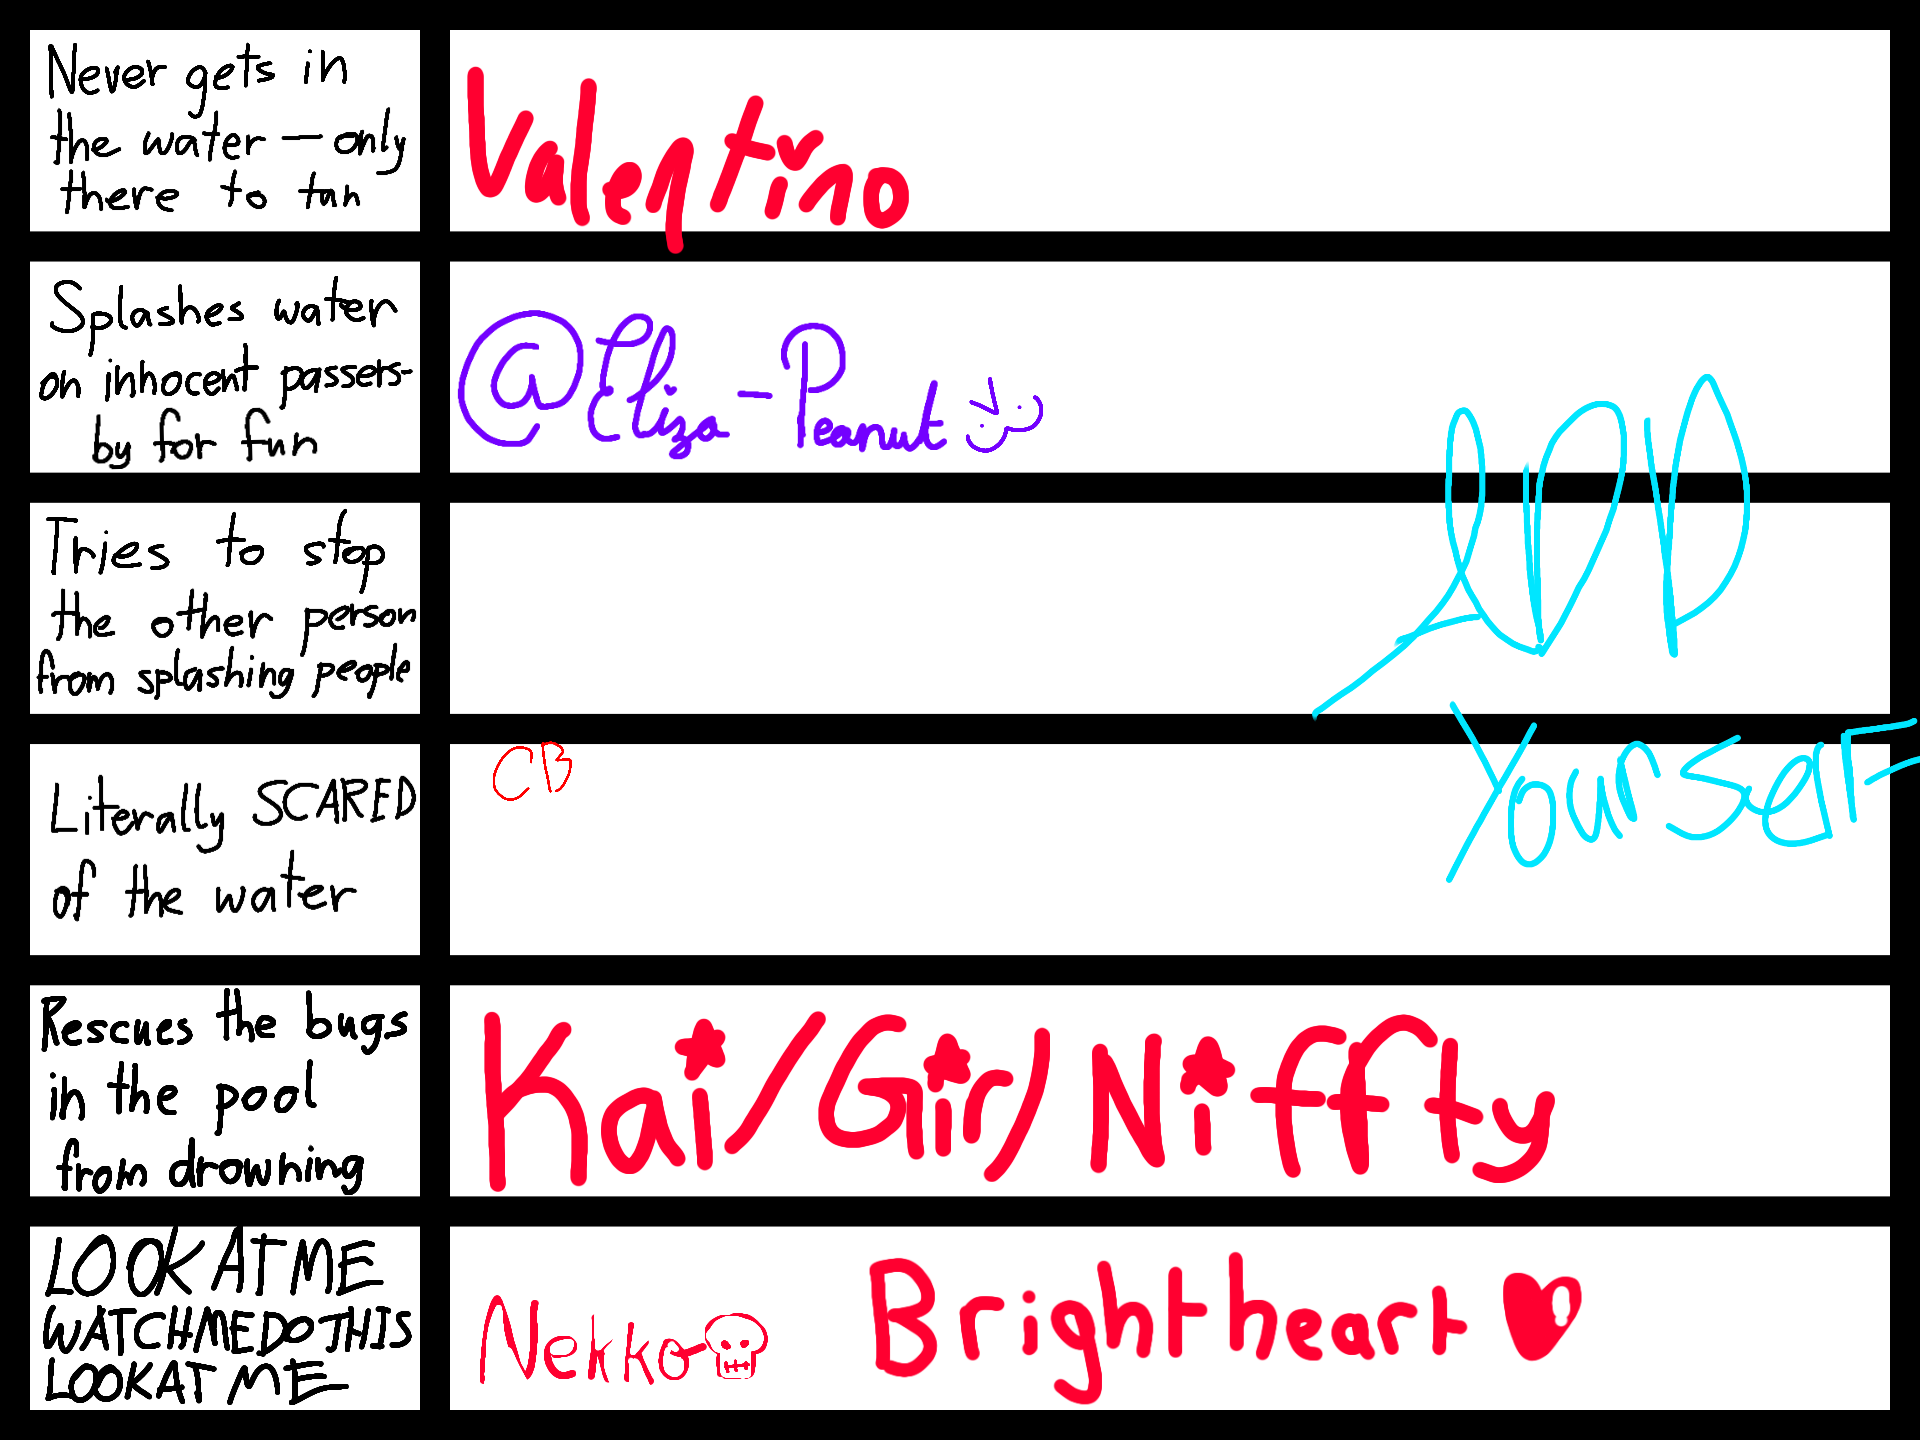 Never gets in
the water — only
there to tan
Valentino
Splashes water
on innocent passers-
by for fun
@Eliza-Peanut
Tries to stop
the other person
from splashing people
ADD
Yourself
Literally SCARED
of the water
CB
Rescues the bugs
in the pool
from drowning
Kai/Gir/Niffty
LOOK AT ME
WATCHMEDOTHIS
LOOKAT ME
Nekko
Brightheart